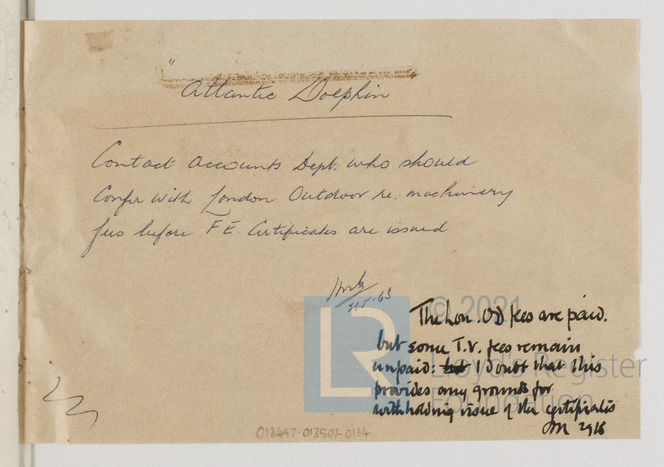 "Atlantic Dolphin"
Contact Accounts Dept. who should
Confer with London Outdoor re. machinery
fees before F.E. Certificates are issued
21.5.63
The Lon. OD fees are paid.
but some T.V. fees remain
unpaid: but I doubt that this
provides any grounds for
withholding issue of the certificates
© 2021
Lloyd's Register
Foundation
LR
013497-013507-0134